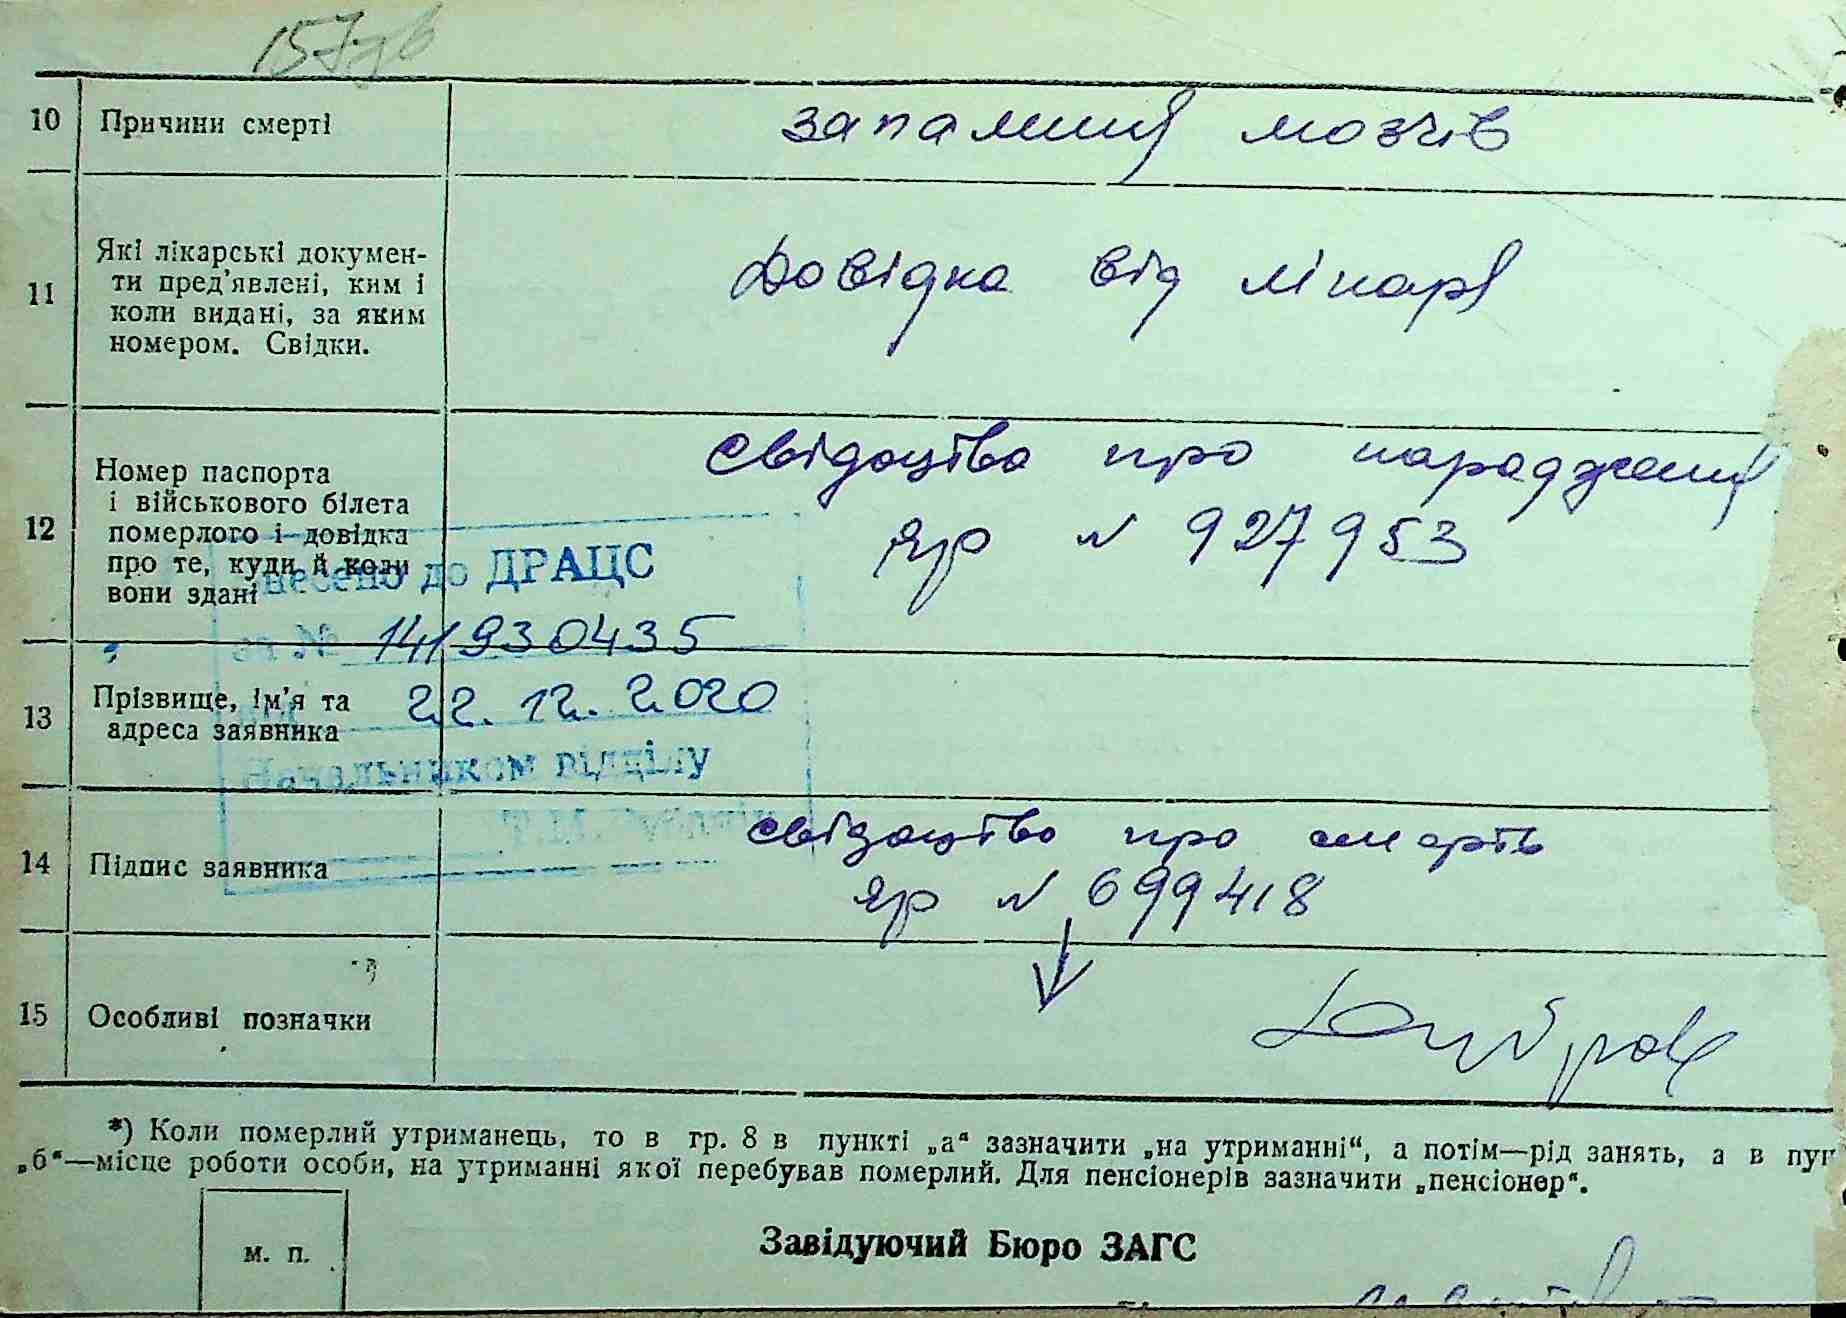 157зв
10 Причини смерті запаления мозгів
11 Які лікарські докумен-
ти пред'явлені, ким і
коли видані, за яким
номером. Свідки.
Довідка від лікаря
12 Номер паспорта
і військового білета
померлого і довідка
про те, куди й коли
вони здані
свідоцтво про народження
ЯР N 927953
внесено до ДРАЦС
за № 141930435
13 Прізвище, ім'я та
адреса заявника
22.12.2020
Начальником відділу
Т.М.
14 Підпис заявника
свідоцтво про смерть
ЯР N 699418
15 Особливі позначки
*) Коли померлий утриманець, то в гр. 8 в пункті „а“ зазначити „на утриманні“, а потім—рід занять, а в пун
„б“—місце роботи особи, на утриманні якої перебував померлий. Для пенсіонерів зазначити „пенсіонер“.
м. п.
Завідуючий Бюро ЗАГС